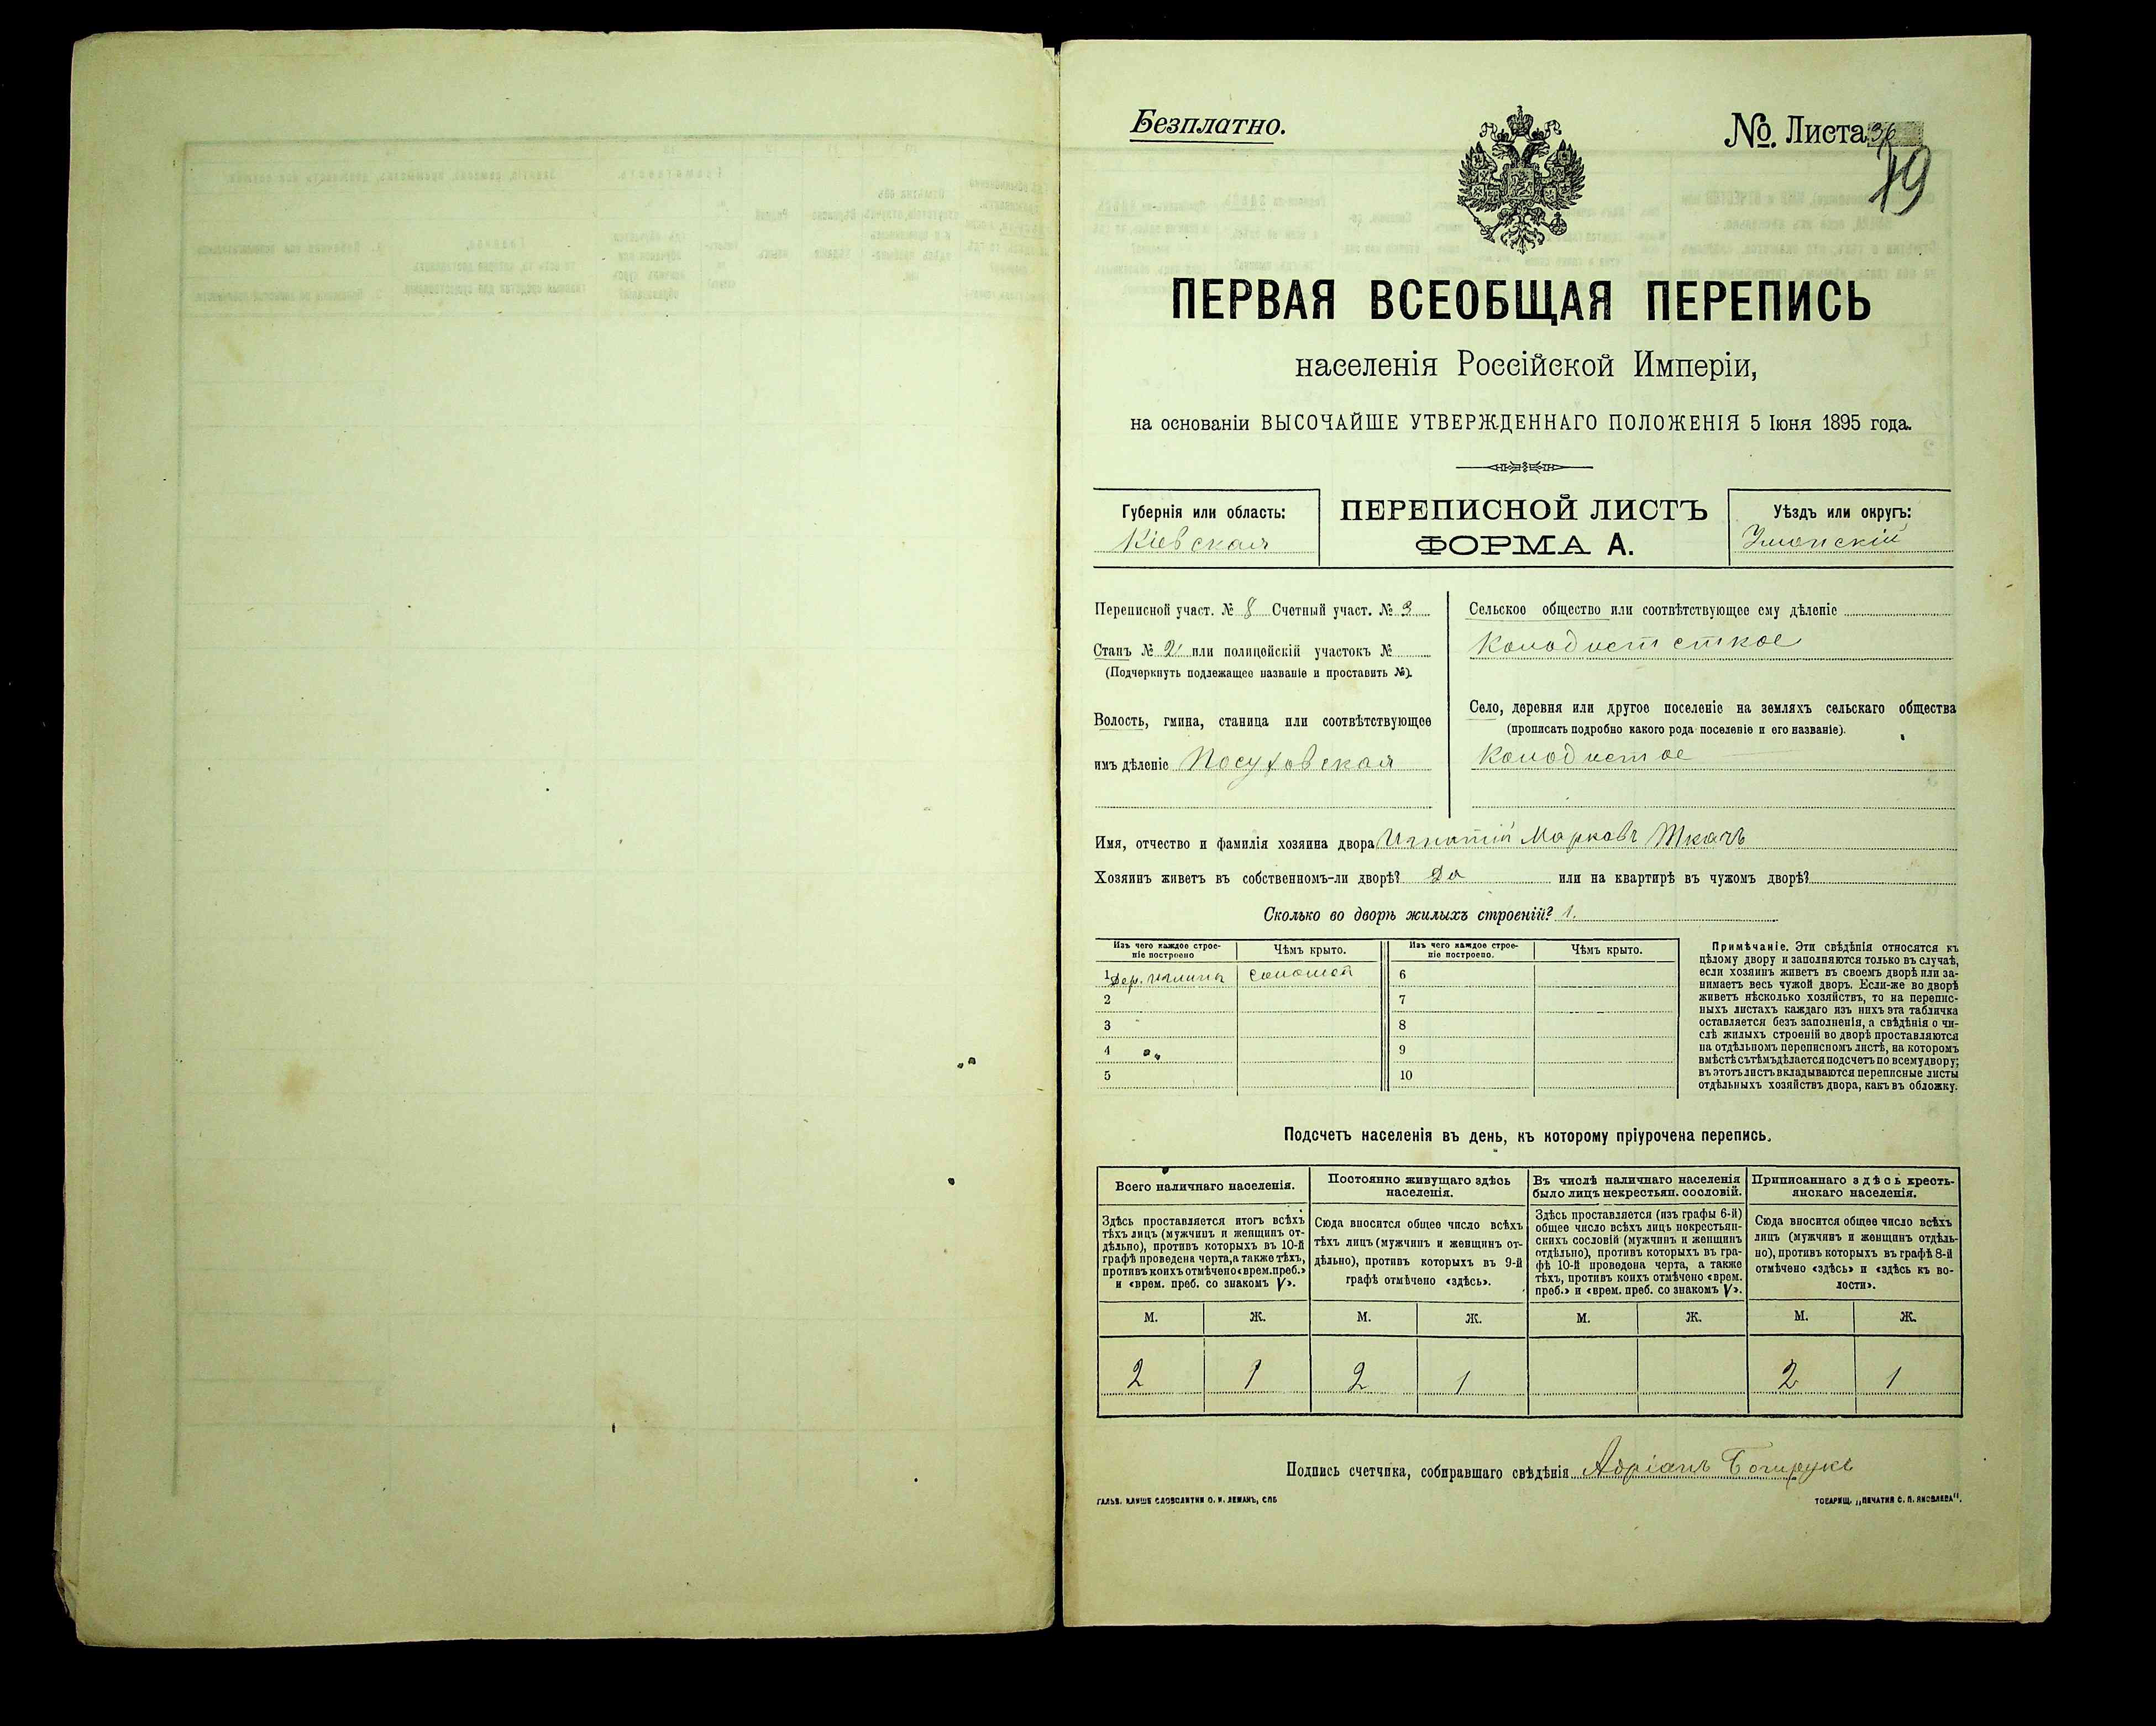 Безплатно.
№. Листа 36
19
ПЕРВАЯ ВСЕОБЩАЯ ПЕРЕПИСЬ
населенія Россійской Имперіи,
на основаніи ВЫСОЧАЙШЕ УТВЕРЖДЕННАГО ПОЛОЖЕНІЯ 5 Іюня 1895 года.
Губернія или область:
Кіевская
ПЕРЕПИСНОЙ ЛИСТЪ
ФОРМА А.
Уѣздъ или округъ:
Уманскій
Переписной участ. № 8 Счетный участ. № 3
Станъ № 2 или полицейскій участокъ №
(Подчеркнуть подлежащее названіе и проставить №).
Волость, гмина, станица или соотвѣтствующее
имъ дѣленіе Посуховская
Сельское общество или соотвѣтствующее ему дѣленіе
Колодистсткое
Село, деревня или другое поселеніе на земляхъ сельскаго общества
(прописать подробно какого рода поселеніе и его названіе).
Колодистое
Имя, отчество и фамилія хозяина двора Игнатій Марковъ Ткачъ
Хозяинъ живетъ въ собственномъ-ли дворѣ? Да или на квартирѣ въ чужомъ дворѣ?
Сколько во дворѣ жилыхъ строеній? 1.
Изъ чего каждое строе-
ніе построено
Чѣмъ крыто.
Изъ чего каждое строе-
ніе построено.
Чѣмъ крыто.
1 Дер. и глина соломой 6
2 7
3 8
4 9
5 10
Примѣчаніе. Эти свѣдѣнія относятся къ
цѣлому двору и заполняются только въ случаѣ,
если хозяинъ живетъ въ своемъ дворѣ или за-
нимаетъ весь чужой дворъ. Если-же во дворѣ
живетъ нѣсколько хозяйствъ, то на перепис-
ныхъ листахъ каждаго изъ нихъ эта табличка
оставляется безъ заполненія, а свѣдѣнія о чи-
слѣ жилыхъ строеній во дворѣ проставляются
на отдѣльномъ переписномъ листѣ, на которомъ
вмѣстѣ съ тѣмъ дѣлается подсчетъ по всему двору;
въ этотъ листъ вкладываются переписные листы
отдѣльныхъ хозяйствъ двора, какъ въ обложку.
Подсчетъ населенія въ день, къ которому пріурочена перепись.
Всего наличнаго населенія.
Здѣсь проставляется итогъ всѣхъ
тѣхъ лицъ (мужчинъ и женщинъ от-
дѣльно), противъ которыхъ въ 10-й
графѣ проведена черта, а также тѣхъ,
противъ коихъ отмѣчено «врем. преб.»
и «врем. преб. со знакомъ V».
Постоянно живущаго здѣсь
населенія.
Сюда вносится общее число всѣхъ
тѣхъ лицъ (мужчинъ и женщинъ от-
дѣльно), противъ которыхъ въ 9-й
графѣ отмѣчено «здѣсь».
Въ числѣ наличнаго населенія
было лицъ некрестьян. сословій.
Здѣсь проставляется (изъ графы 6-й)
общее число всѣхъ лицъ некрестьян-
скихъ сословій (мужчинъ и женщинъ
отдѣльно), противъ которыхъ въ гра-
фѣ 10-й проведена черта, а также
тѣхъ, противъ коихъ отмѣчено «врем.
преб.» и «врем. преб. со знакомъ V».
Приписаннаго здѣсь кресть-
янскаго населенія.
Сюда вносится общее число всѣхъ
лицъ (мужчинъ и женщинъ отдѣль-
но), противъ которыхъ въ графѣ 8-й
отмѣчено «здѣсь» и «здѣсь къ во-
лости».
М. Ж. М. Ж. М. Ж. М. Ж.
2 1 2 1 2 1
Подпись счетчика, собиравшаго свѣдѣнія Адріанъ
ГАЛЬВ. КЛИШЕ СЛОВОЛИТНИ О. И. ЛЕМАНЪ, СПБ
ТОВАРИЩ. „ПЕЧАТНЯ С. П. ЯКОВЛЕВА".